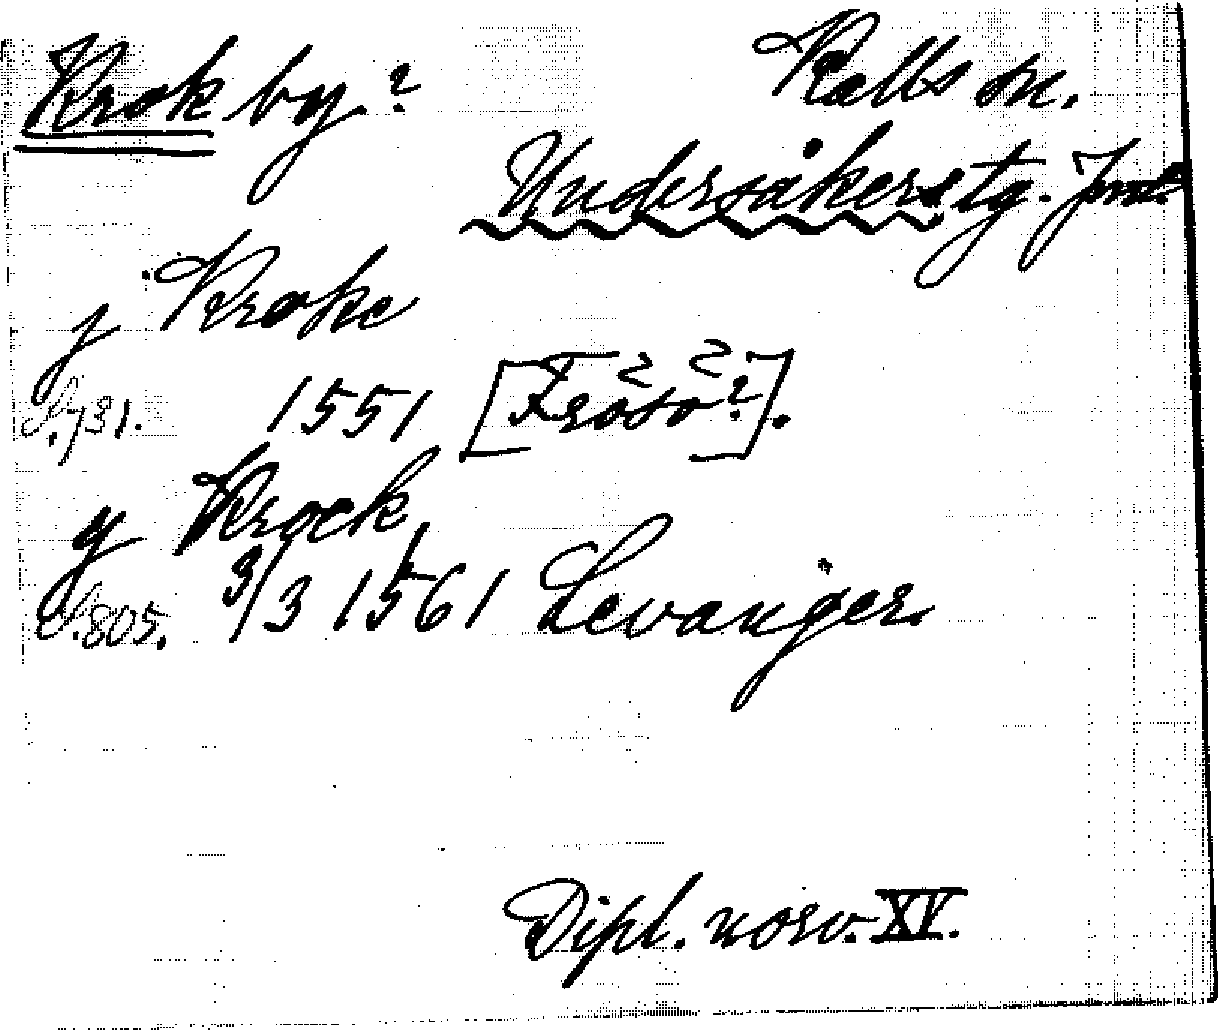 Krok by? Kalls sn.
Undersåkers tg. Jmt.
j Kroke
S. 731. 1551 [Frösö?].
y Krock,
S. 805. 3/3 1561 Levanger.
Dipl. norv. XV.